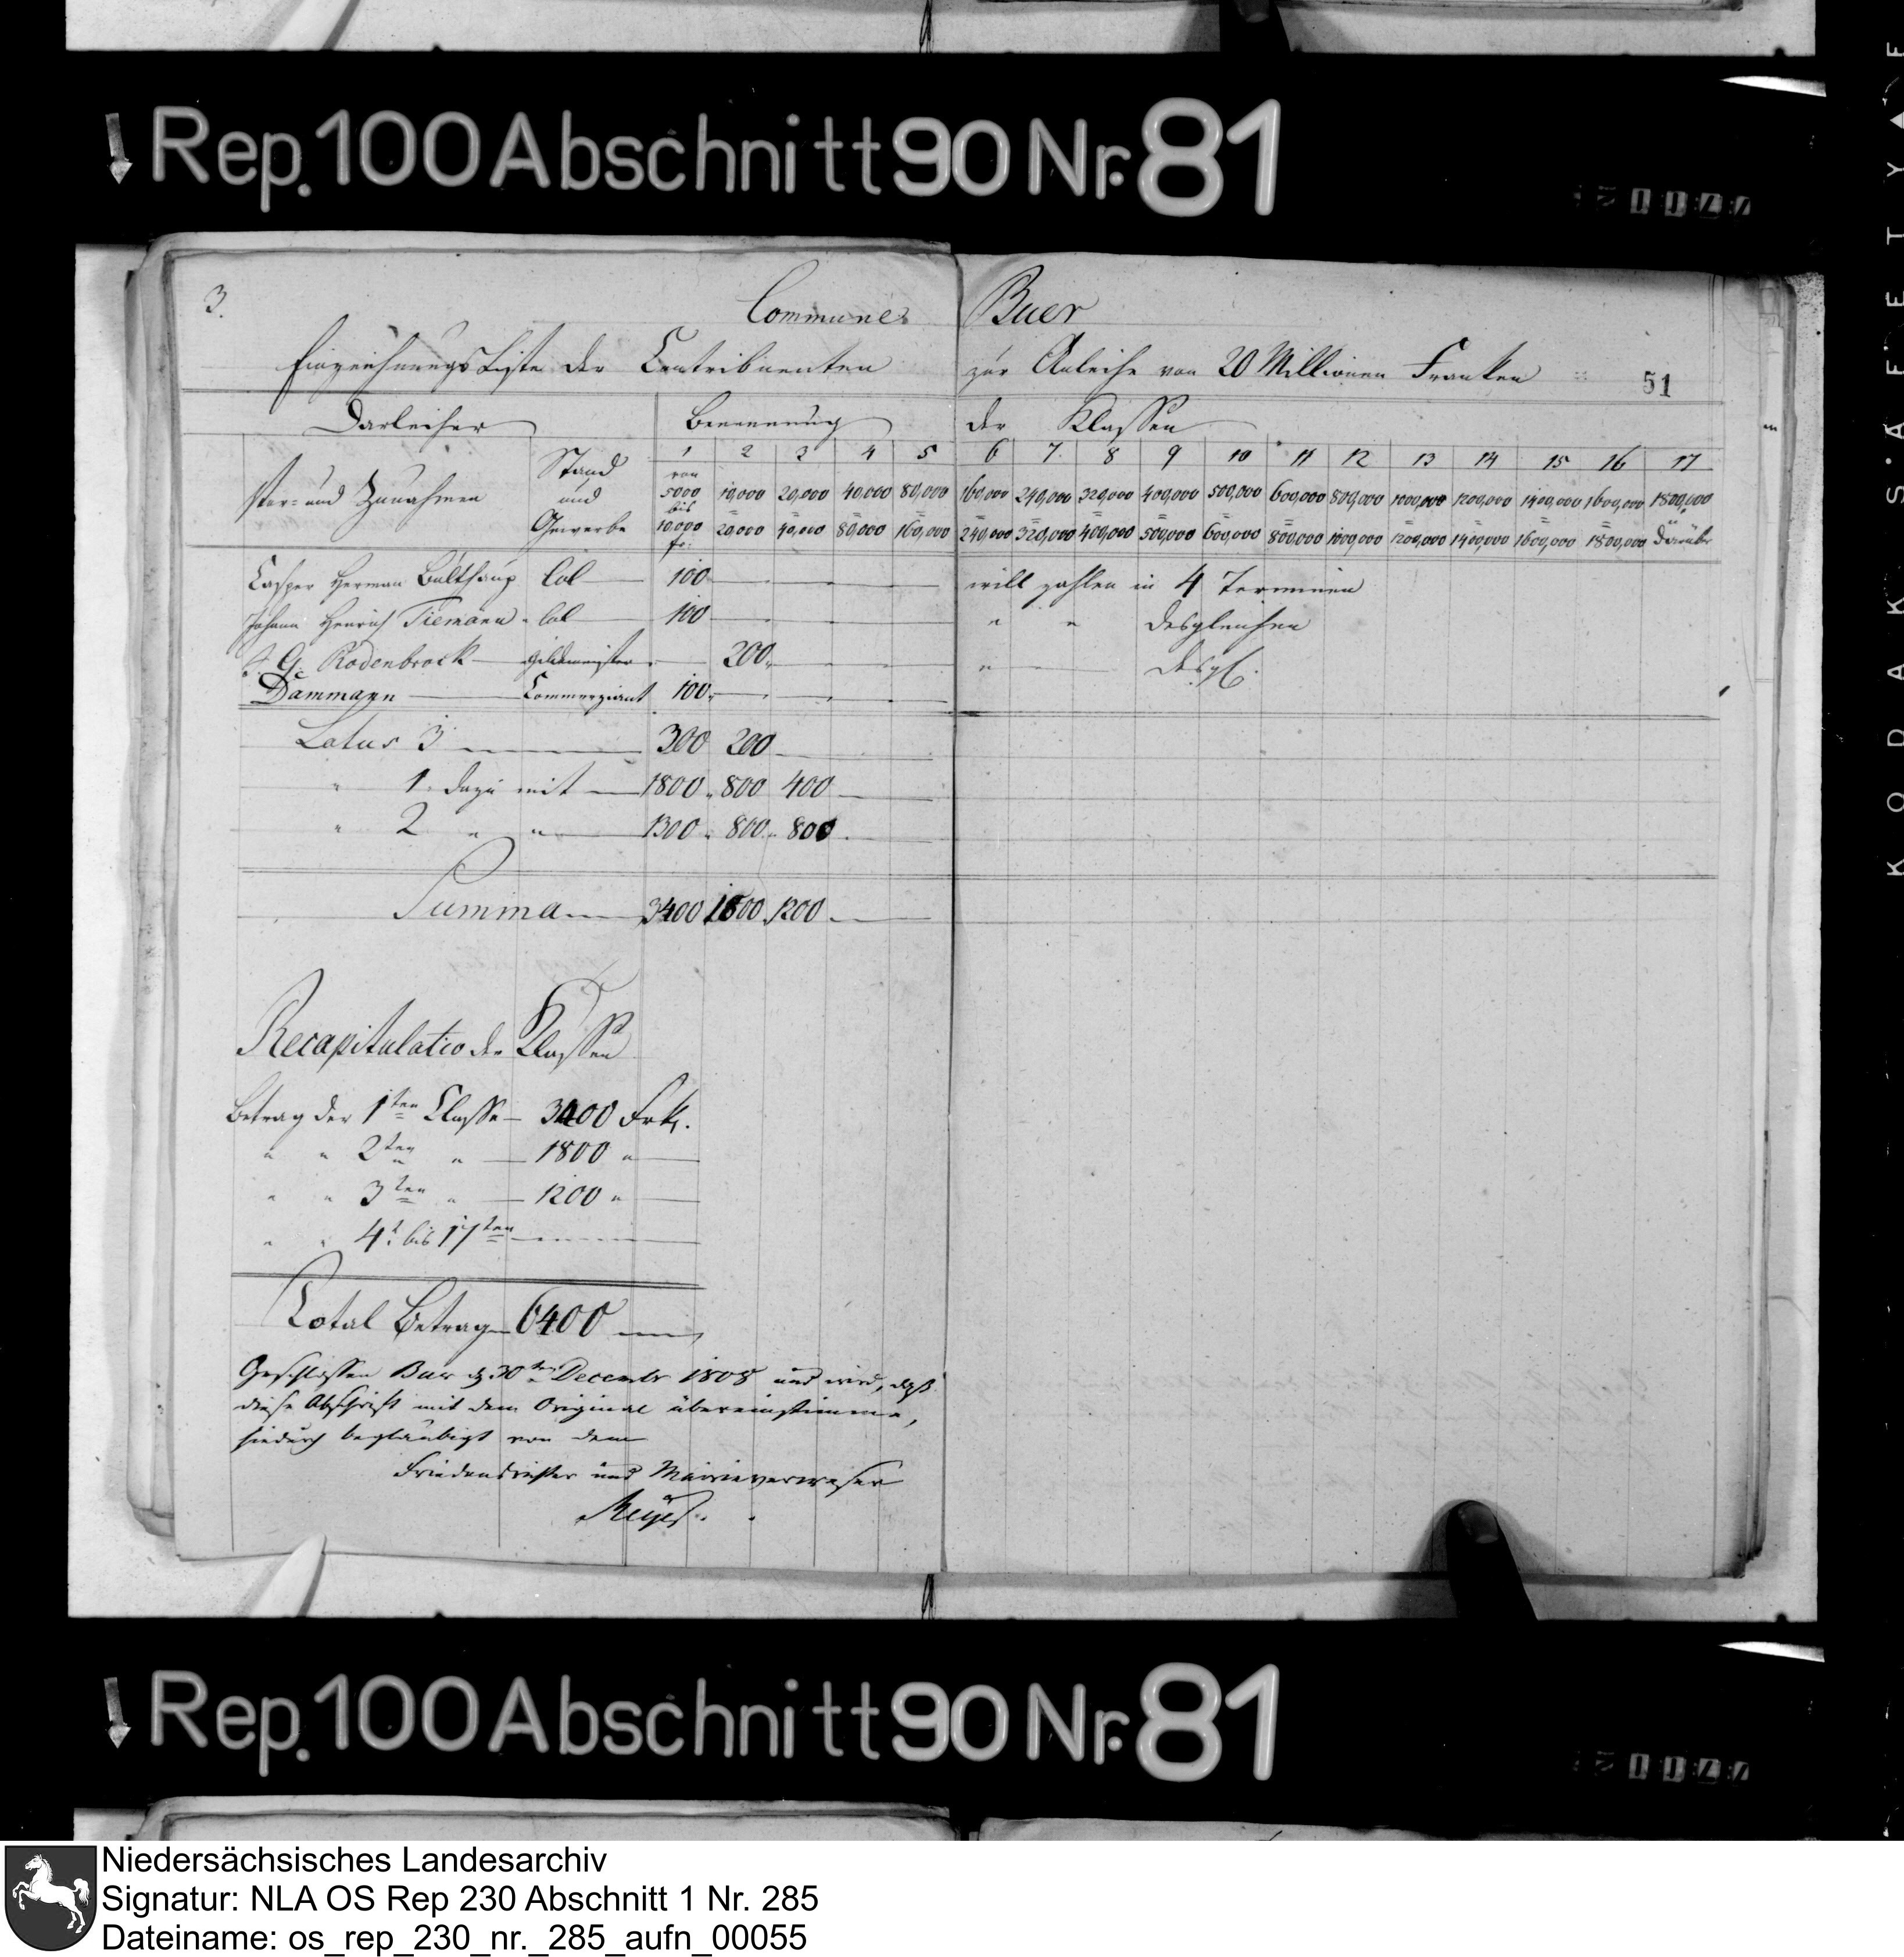 Rep. 100 Abschnitt 90 Nr. 81
3.
Commune Buer
Einzeichnungs Liste der Contribuenten zur Anleihe von 20 Millionen Franken
51
Darleiher Benennung der Klassen
Vor- und Zunahmen Stand und Gewerbe
1 2 3 4 5 6 7 8 9 10 11 12 13 14 15 16 17
von 5000 10,000 20,000 40,000 80,000 160,000 240,000 320,000 400,000 500,000 600,000 800,000 1000,000 1200,000 1400,000 1600,000 1800,000
bis 10,000 fr. 20,000 40,000 80,000 160,000 240,000 320,000 400,000 500,000 600,000 800,000 1000,000 1200,000 1400,000 1600,000 1800,000 darüber
Casper Herman Bulthaup Col 100 will zahlen in 4 Terminen
Johann Henrich Tiemann Col 100 " " desgleichen
G. Rodenbrock Gildemeister 200 " desgl.
Dammann Commerziant 100
Latus 3 300 200
" 1 dazu mit 1800 800 400
" 2 " " 1300 800 800
Summa 3400 1800 1200
Recapitulatio der Klassen
Betrag der 1ten Classe 3400 Frk.
" " 2ten " 1800 "
" " 3ten " 1200 "
" " 4t. bis 17ten
Total Betrag 6400
Geschlossen Buer d 30ten December 1808 und wird, daß
diese Abschrift mit dem Original übereinstimme,
hiedurch beglaubigt von dem
Friedensrichter und Mairieverweser
Meyer.
Rep. 100 Abschnitt 90 Nr. 81
KODAK SAFETY
Niedersächsisches Landesarchiv
Signatur: NLA OS Rep 230 Abschnitt 1 Nr. 285
Dateiname: os_rep_230_nr._285_aufn_00055